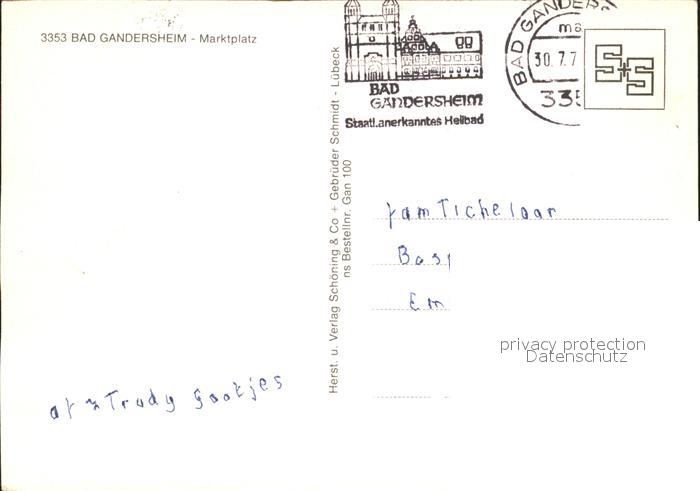 3353 BAD GANDERSHEIM - Marktplatz
BAD
GANDERSHEIM
Staatl. anerkanntes Heilbad
BAD GANDER
30.7.7
335
Herst. u. Verlag Schöning & Co + Gebrüder Schmidt - Lübeck
ns Bestellnr. Gan 100
fam Tichelaar
Em
privacy protection
Datenschutz
Trudy Gootjes